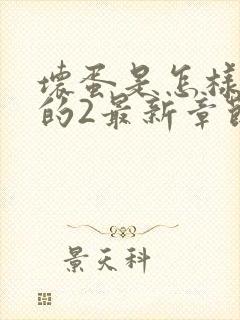 坏蛋是怎样
的2最新章节
景天科